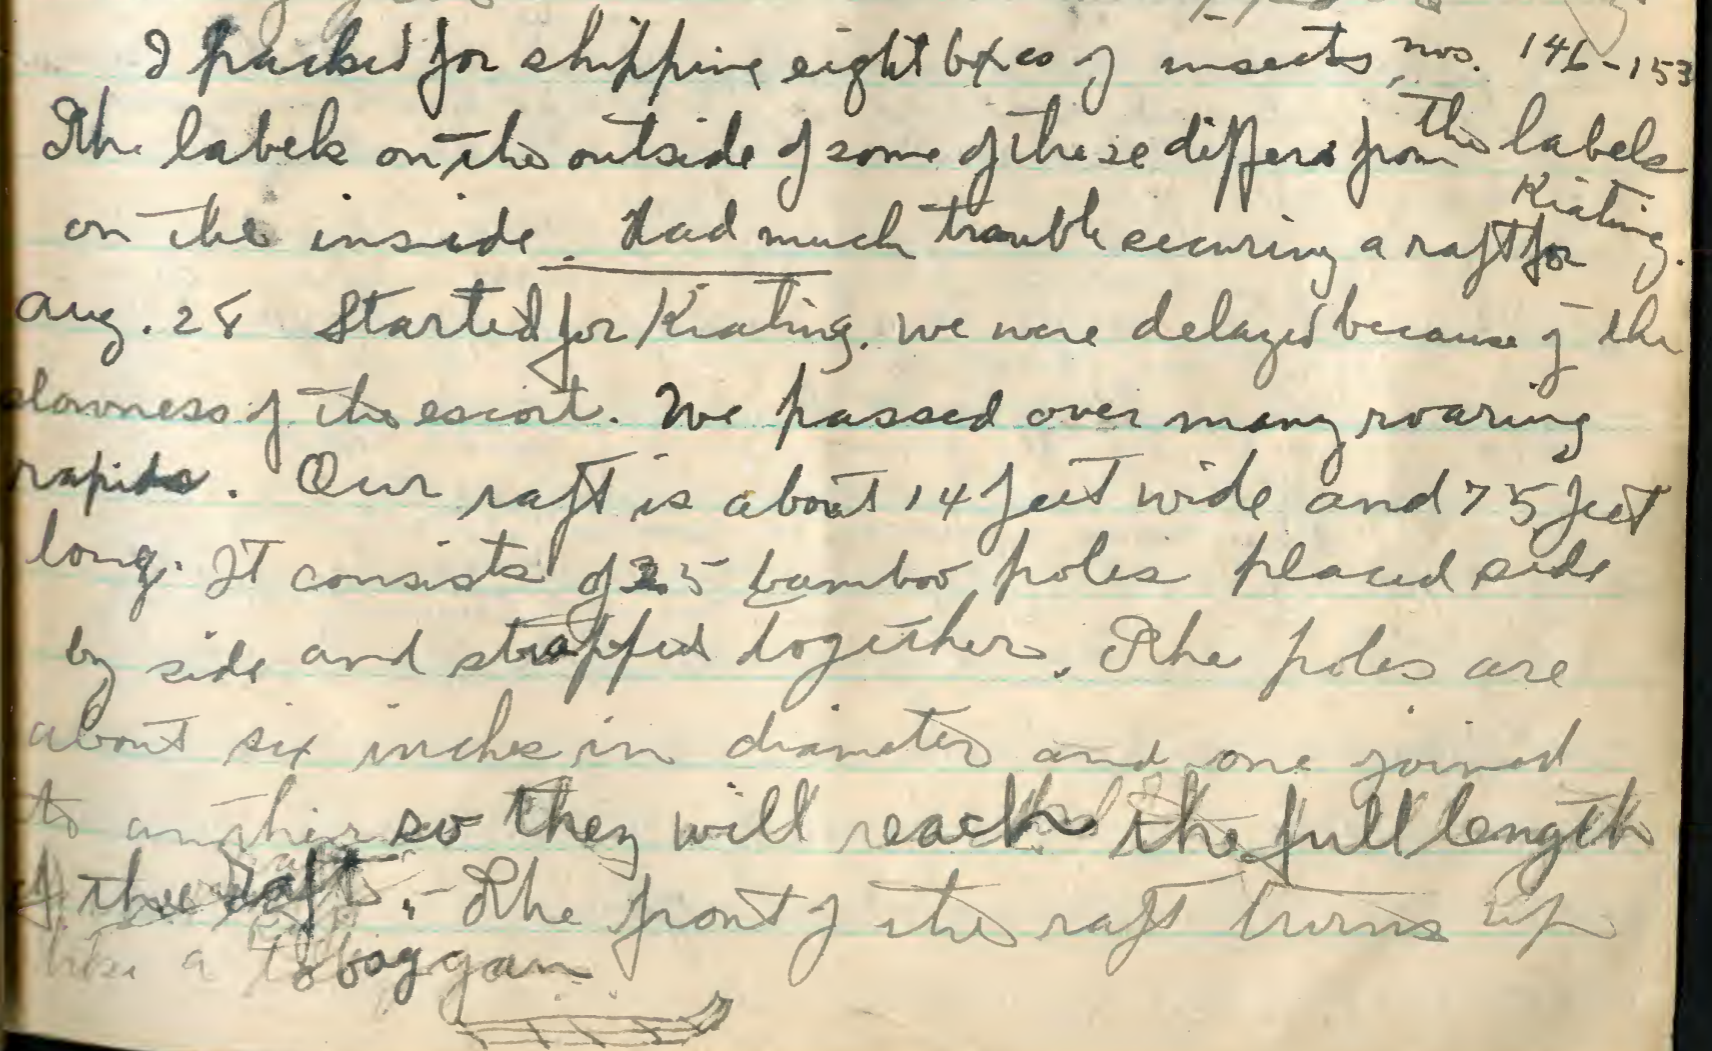 I packed for shipping eight boxes of insects, nos. 146-153
The labels on the outside of some of these differs from the labels
on the inside. Had much trouble securing a raft for Kiating.
Aug. 28 Started for Kiating. We were delayed because of the
slowness of the escort. We passed over many roaring
rapids. Our raft is about 14 feet wide and 75 feet
long. It consists of 25 bamboo poles placed side
by side and strapped together. The poles are
about six inches in diameter and one joined
to another so they will reach the full length
of the raft. - The front of the raft turns up
like a toboggan